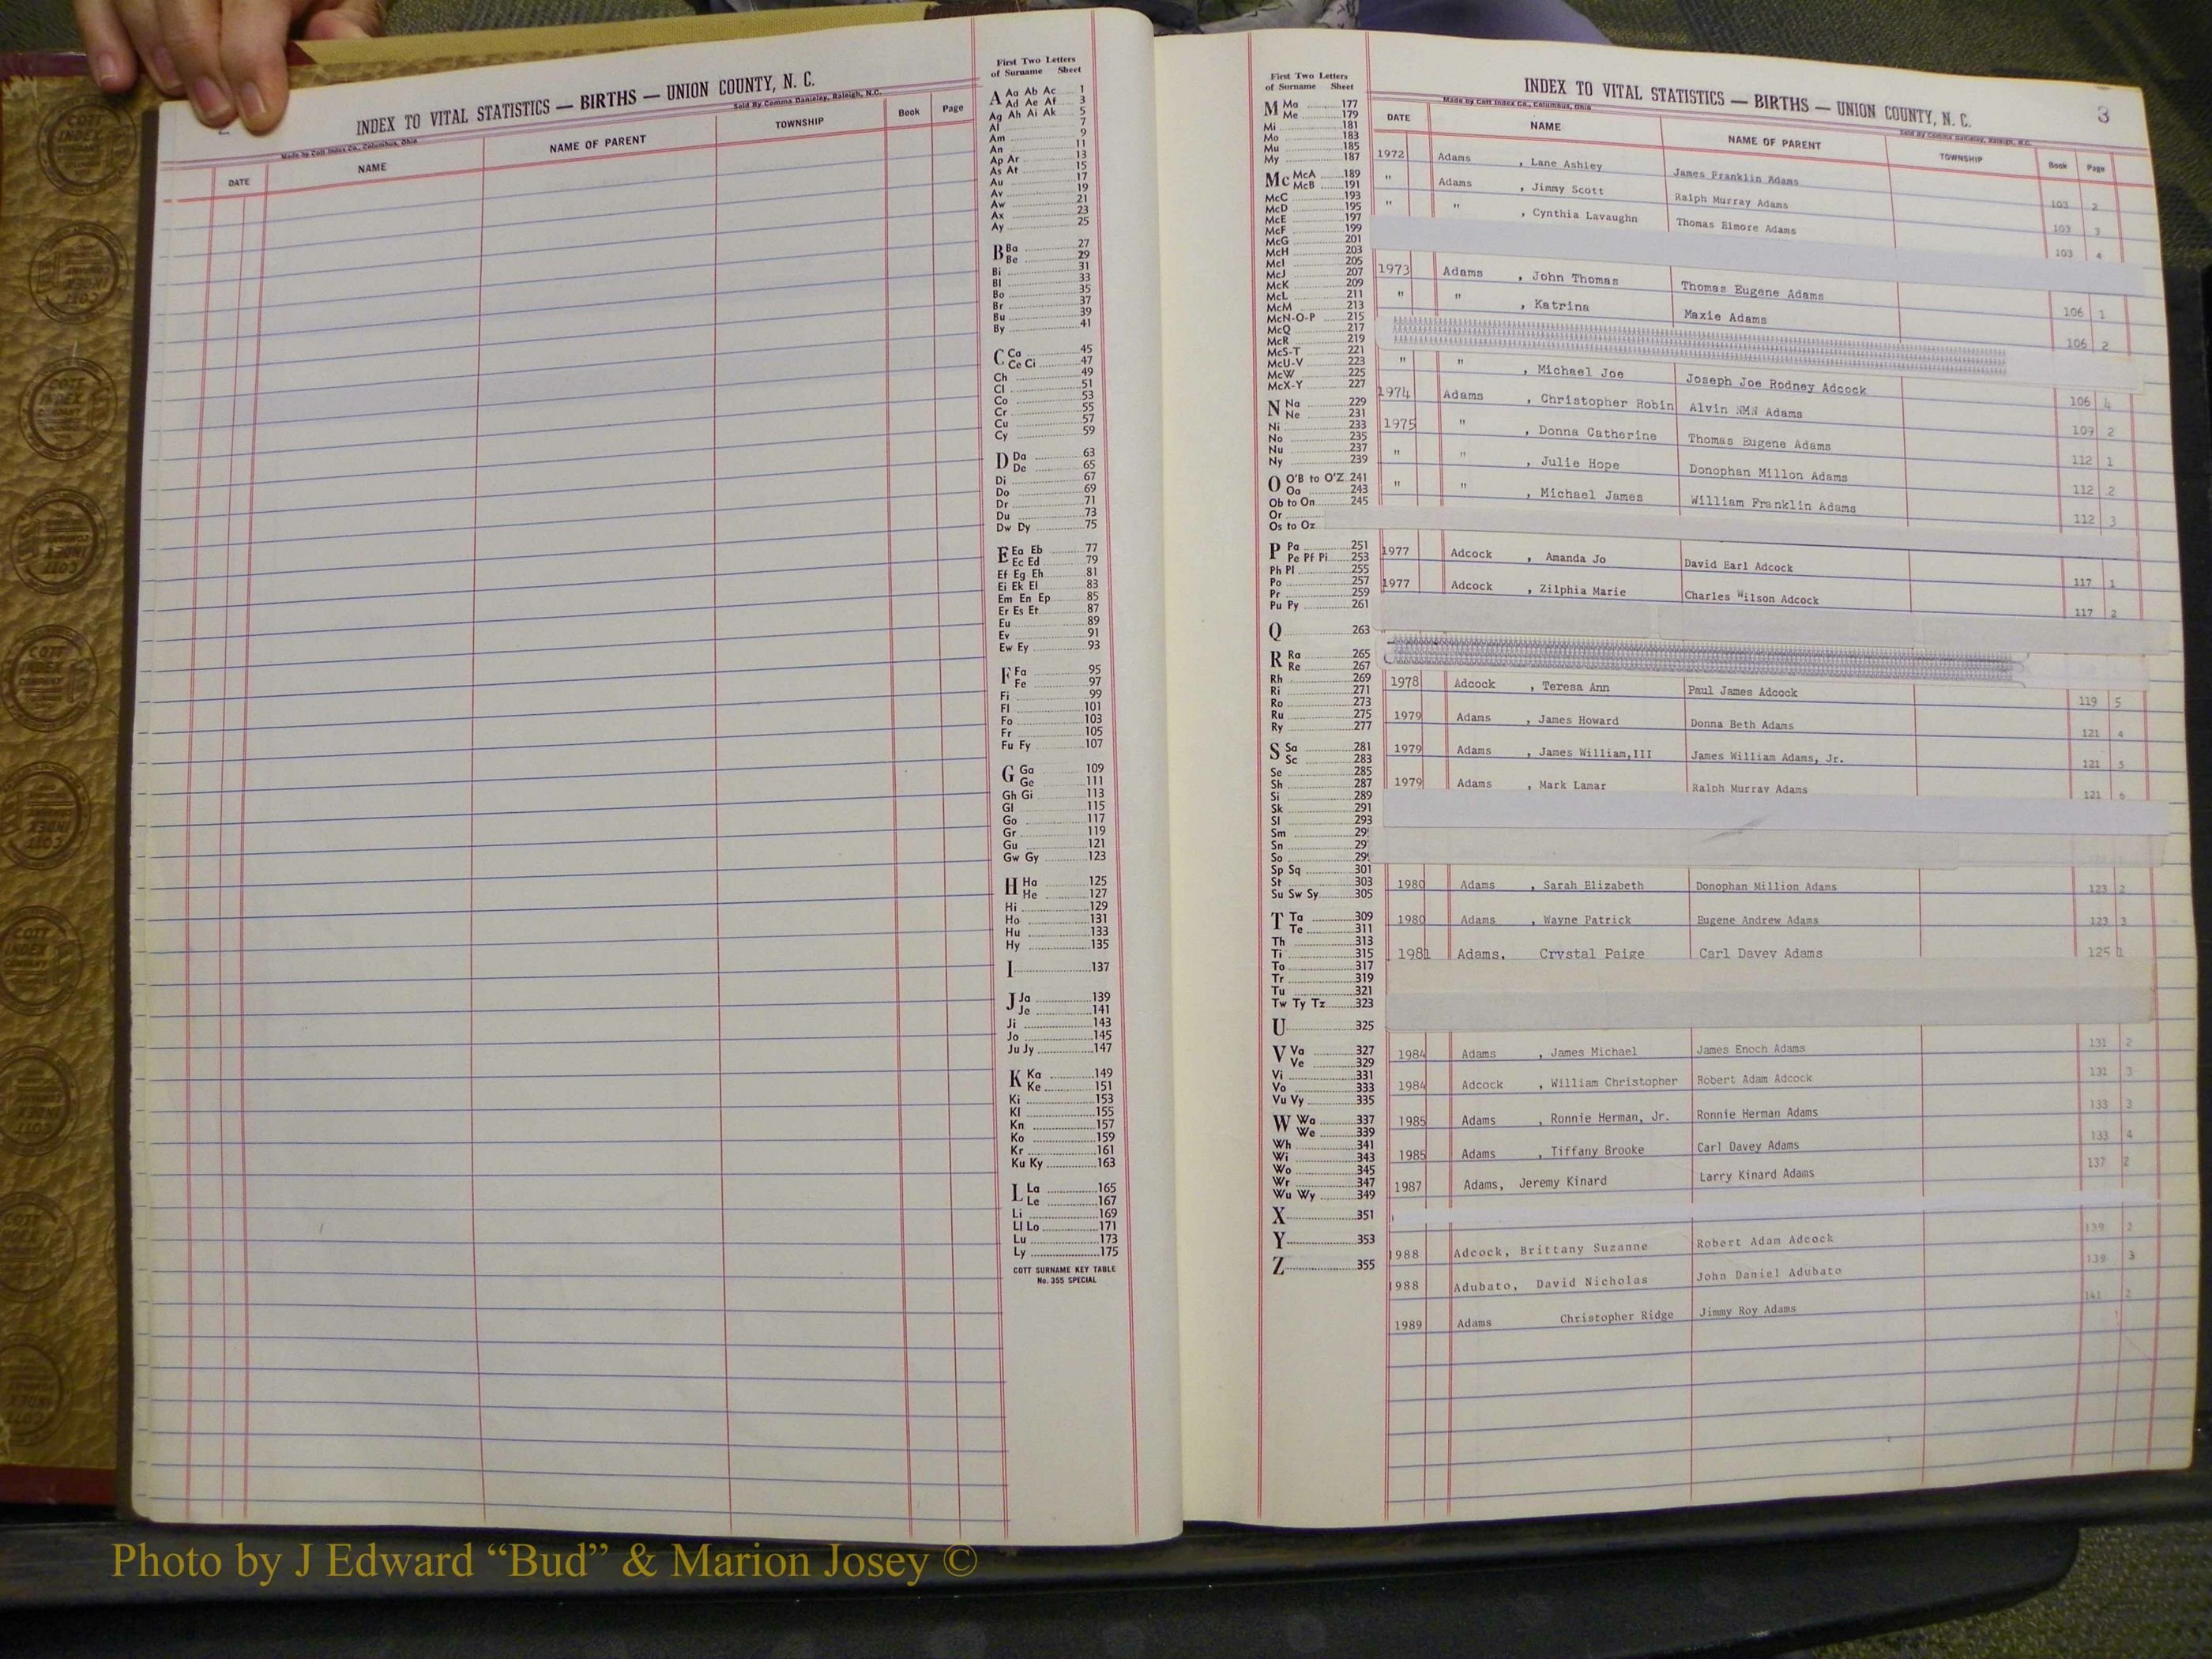 INDEX TO VITAL STATISTICS — BIRTHS — UNION COUNTY, N. C.
Made by Cott Index Co., Columbus, Ohio
Sold By Comma Danieley, Raleigh, N.C.
DATE NAME NAME OF PARENT TOWNSHIP Book Page
First Two Letters
of Surname Sheet
A Aa Ab Ac 1
Ad Ae Af 3
Ag Ah Ai Ak 5
Al 7
Am 9
An 11
Ap Ar 13
As At 15
Au 17
Av 19
Aw 21
Ax 23
Ay 25
B Ba 27
Be 29
Bi 31
Bl 33
Bo 35
Br 37
Bu 39
By 41
C Ca 45
Ce Ci 47
Ch 49
Cl 51
Co 53
Cr 55
Cu 57
Cy 59
D Da 63
De 65
Di 67
Do 69
Dr 71
Du 73
Dw Dy 75
E Ea Eb 77
Ec Ed 79
Ef Eg Eh 81
Ei Ek El 83
Em En Ep 85
Er Es Et 87
Eu 89
Ev 91
Ew Ey 93
F Fa 95
Fe 97
Fi 99
Fl 101
Fo 103
Fr 105
Fu Fy 107
G Ga 109
Ge 111
Gh Gi 113
Gl 115
Go 117
Gr 119
Gu 121
Gw Gy 123
H Ha 125
He 127
Hi 129
Ho 131
Hu 133
Hy 135
I 137
J Ja 139
Je 141
Ji 143
Jo 145
Ju Jy 147
K Ka 149
Ke 151
Ki 153
Kl 155
Kn 157
Ko 159
Kr 161
Ku Ky 163
L La 165
Le 167
Li 169
Ll Lo 171
Lu 173
Ly 175
COTT SURNAME KEY TABLE
No. 355 SPECIAL
First Two Letters
of Surname Sheet
M Ma 177
Me 179
Mi 181
Mo 183
Mu 185
My 187
Mc McA 189
McB 191
McC 193
McD 195
McE 197
McF 199
McG 201
McH 203
McI 205
McJ 207
McK 209
McL 211
McM 213
McN-O-P 215
McQ 217
McR 219
McS-T 221
McU-V 223
McW 225
McX-Y 227
N Na 229
Ne 231
Ni 233
No 235
Nu 237
Ny 239
O O'B to O'Z 241
Oa 243
Ob to On 245
Or
Os to Oz
P Pa 251
Pe Pf Pi 253
Ph Pl 255
Po 257
Pr 259
Pu Py 261
Q 263
R Ra 265
Re 267
Rh 269
Ri 271
Ro 273
Ru 275
Ry 277
S Sa 281
Sc 283
Se 285
Sh 287
Si 289
Sk 291
Sl 293
Sm 29
Sn 29
So 29
Sp Sq 301
St 303
Su Sw Sy 305
T Ta 309
Te 311
Th 313
Ti 315
To 317
Tr 319
Tu 321
Tw Ty Tz 323
U 325
V Va 327
Ve 329
Vi 331
Vo 333
Vu Vy 335
W Wa 337
We 339
Wh 341
Wi 343
Wo 345
Wr 347
Wu Wy 349
X 351
Y 353
Z 355
INDEX TO VITAL STATISTICS — BIRTHS — UNION COUNTY, N. C. 3
Made by Cott Index Co., Columbus, Ohio
Sold By Comma Danieley, Raleigh, N.C.
DATE NAME NAME OF PARENT TOWNSHIP Book Page
1972 Adams , Lane Ashley James Franklin Adams 103 2
" Adams , Jimmy Scott Ralph Murray Adams 103 3
" " , Cynthia Lavaughn Thomas Elmore Adams 103 4
1973 Adams , John Thomas Thomas Eugene Adams 106 1
" " , Katrina Maxie Adams 106 2
" " , Michael Joe Joseph Joe Rodney Adcock 106 4
1974 Adams , Christopher Robin Alvin NMN Adams 109 2
1975 " , Donna Catherine Thomas Eugene Adams 112 1
" " , Julie Hope Donophan Millon Adams 112 2
" " , Michael James William Franklin Adams 112 3
1977 Adcock , Amanda Jo David Earl Adcock 117 1
1977 Adcock , Zilphia Marie Charles Wilson Adcock 117 2
1978 Adcock , Teresa Ann Paul James Adcock 119 5
1979 Adams , James Howard Donna Beth Adams 121 4
1979 Adams , James William,III James William Adams, Jr. 121 5
1979 Adams , Mark Lamar Ralph Murray Adams 121 6
1980 Adams , Sarah Elizabeth Donophan Million Adams 123 2
1980 Adams , Wayne Patrick Eugene Andrew Adams 123 3
1981 Adams, Crystal Paige Carl Davey Adams 125 1
1984 Adams , James Michael James Enoch Adams 131 2
1984 Adcock , William Christopher Robert Adam Adcock 131 3
1985 Adams , Ronnie Herman, Jr. Ronnie Herman Adams 133 3
1985 Adams , Tiffany Brooke Carl Davey Adams 133 4
1987 Adams, Jeremy Kinard Larry Kinard Adams 137 2
1988 Adcock, Brittany Suzanne Robert Adam Adcock 139 2
1988 Adubato, David Nicholas John Daniel Adubato 139 3
1989 Adams Christopher Ridge Jimmy Roy Adams 141 2
Photo by J Edward “Bud” & Marion Josey ©